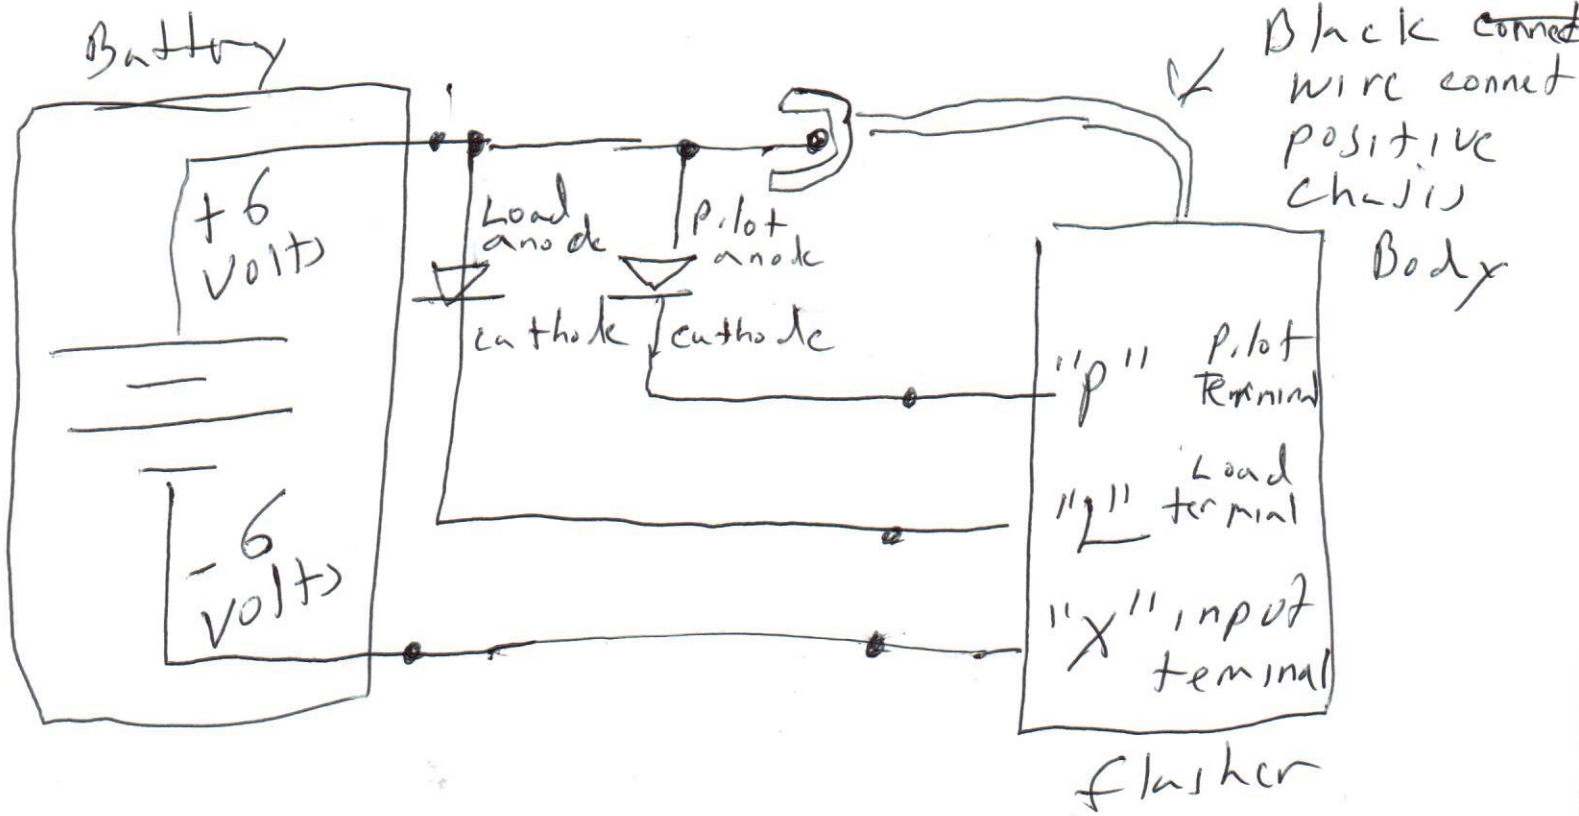 Battery
+6
volts
-6
volts
Load
anode
cathode
Pilot
anode
cathode
Black connect
wire connet
positive
chasis
Body
"P" Pilot
Terminal
"L" Load
terminal
"X" input
terminal
flasher